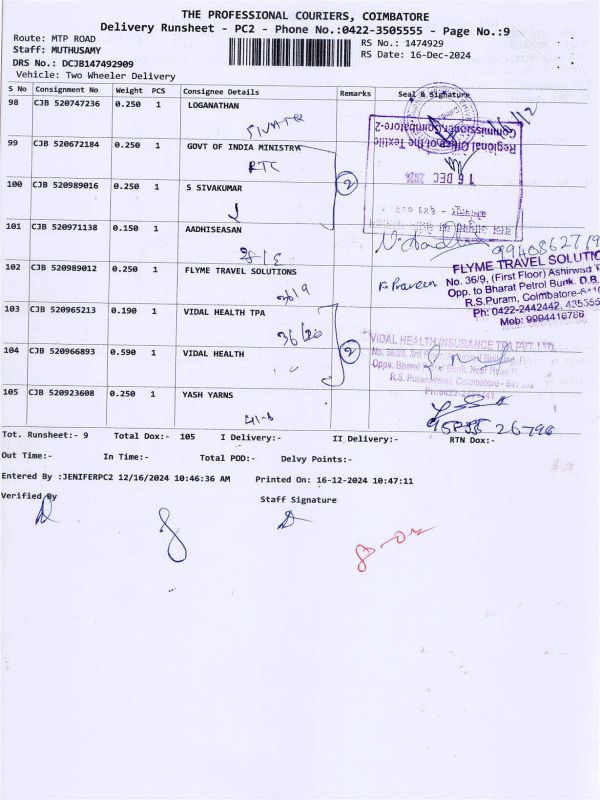 THE PROFESSIONAL COURIERS, COIMBATORE
Delivery Runsheet - PC2 - Phone No.:0422-3505555 - Page No.:9
Route: MTP ROAD
RS No.: 1474929
Staff: MUTHUSAMY
RS Date: 16-Dec-2024
DRS No.: DCJB147492909
Vehicle: Two Wheeler Delivery
S No Consignment No Weight PCS Consignee Details Remarks Seal & Signature
98 CJB 520747236 0.250 1 LOGANATHAN
99 CJB 520672184 0.250 1 GOVT OF INDIA MINISTRY
Regional Office of the Textile
Commissioner Coimbatore-2
RTC
16 DEC 2024
100 CJB 520989016 0.250 1 S SIVAKUMAR
2
101 CJB 520971138 0.150 1 AADHISEASAN
102 CJB 520989012 0.250 1 FLYME TRAVEL SOLUTIONS
P. Praveen
FLYME TRAVEL SOLUTIO
No. 36/9, (First Floor) Ashirwad
Opp. to Bharat Petrol Bunk, D.B.
R.S.Puram, Coimbatore-641
Ph: 0422-2442442, 435355
Mob: 9994416786
36/9
103 CJB 520965213 0.190 1 VIDAL HEALTH TPA
36/20
104 CJB 520966893 0.590 1 VIDAL HEALTH
2
VIDAL HEALTH INSURANCE TPA PVT. LTD.
No. 38/20, 3rd
Opps. Bharat Petrol Bunk, Near Head
R.S. Puram West, Coimbatore - 641
105 CJB 520923608 0.250 1 YASH YARNS
Tot. Runsheet:- 9 Total Dox:- 105 I Delivery:- II Delivery:- RTN Dox:-
Out Time:- In Time:- Total POD:- Delvy Points:-
Entered By :JENIFERPC2 12/16/2024 10:46:36 AM Printed On: 16-12-2024 10:47:11
Verified By Staff Signature